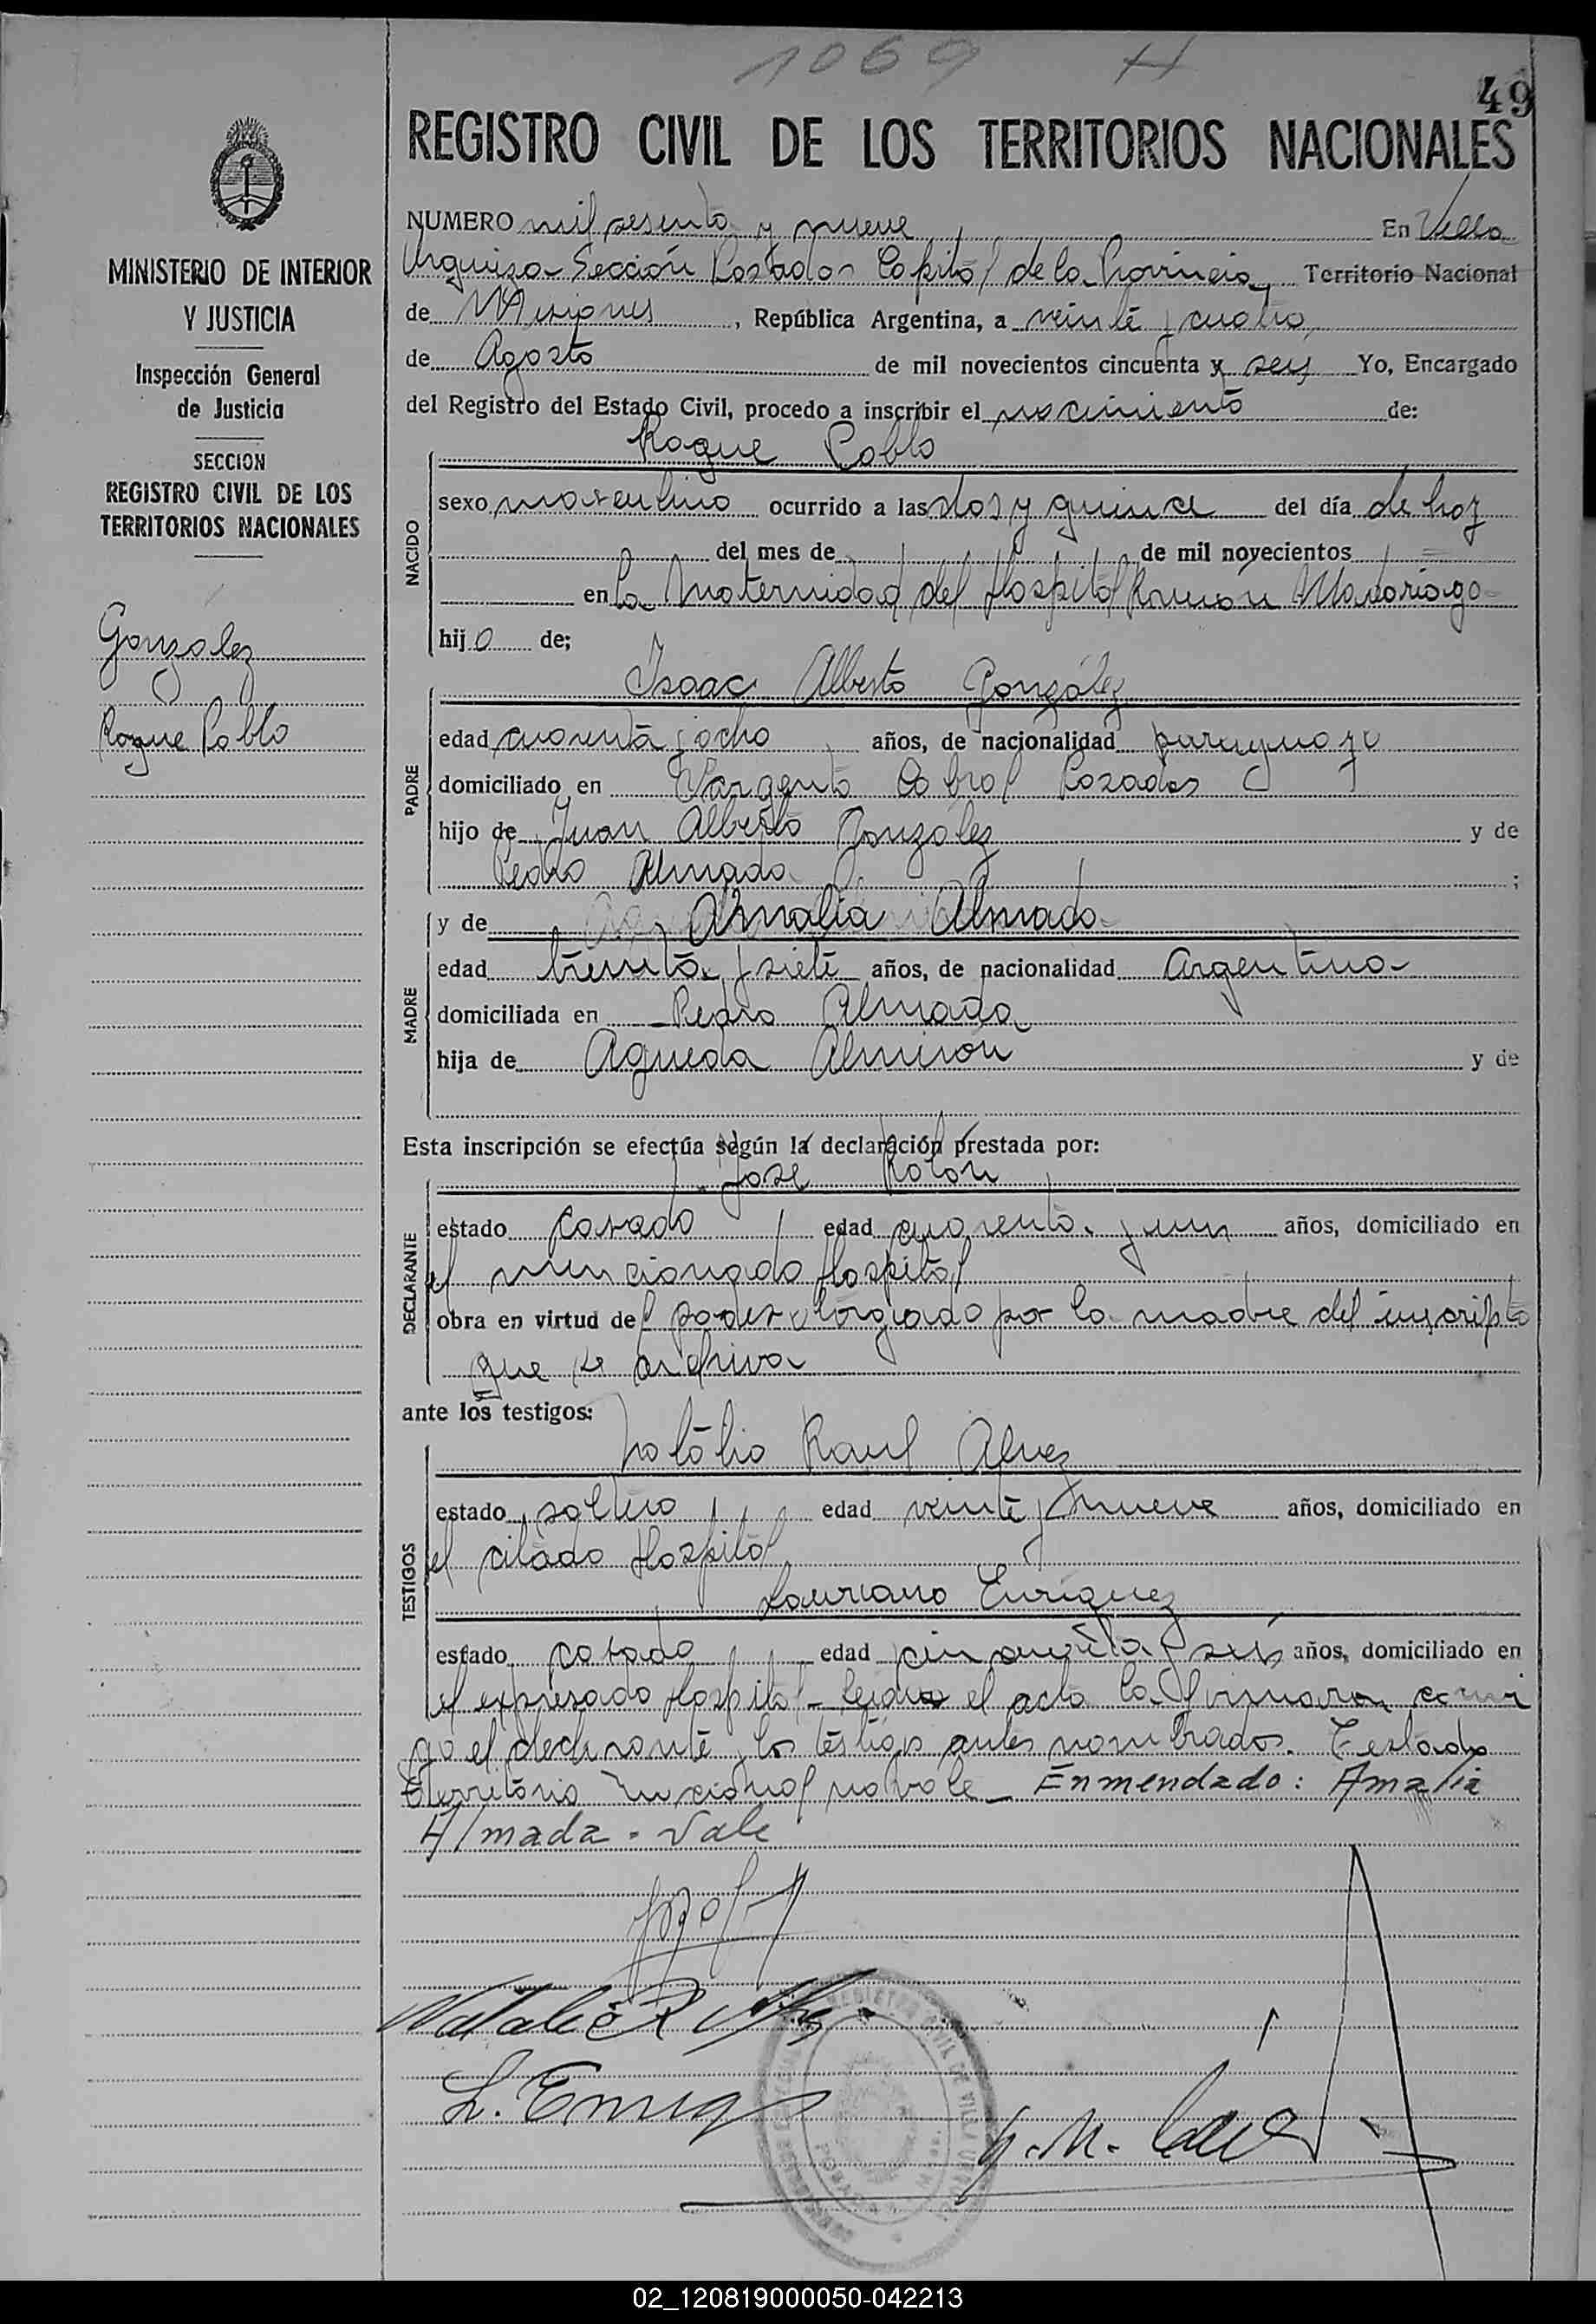 1069 H
49
REGISTRO CIVIL DE LOS TERRITORIOS NACIONALES
MINISTERIO DE INTERIOR
Y JUSTICIA
Inspección General
de Justicia
SECCION
REGISTRO CIVIL DE LOS
TERRITORIOS NACIONALES
Gonzalez
Roque Pablo
NUMERO mil sesenta y nueve En Villa
Urquiza Sección Posadas Capital de la Provincia Territorio Nacional
de Misiones, República Argentina, a veinte y cuatro
de Agosto de mil novecientos cincuenta y seis Yo, Encargado
del Registro del Estado Civil, procedo a inscribir el nacimiento de:
Roque Pablo
NACIDO
sexo masculino ocurrido a las dos y quince del día de hoy
del mes de de mil novecientos
en la Maternidad del Hospital Ramón Madariaga
hijo de;
Isaac Alberto González
PADRE
edad cuarenta y ocho años, de nacionalidad paraguayo
domiciliado en Sargento Cabral Posadas
hijo de Juan Alberto González y de
Pedro Almada ;
y de Amalia Almada
MADRE
edad treinta y siete años, de nacionalidad Argentina
domiciliada en Pedro Almada
hija de Agueda Almiron y de
Esta inscripción se efectúa según la declaración prestada por:
José Rolon
DECLARANTE
estado casado edad cuarenta y un años, domiciliado en
el mencionado Hospital
obra en virtud del poder otorgado por la madre del inscripto
que se archiva
ante los testigos:
Natalio Raul Alvez
TESTIGOS
estado soltero edad veinte y nueve años, domiciliado en
el citado Hospital
Lauriano Enriquez
estado casado edad cincuenta y seis años, domiciliado en
el expresado Hospital - Leida el acta la firmaron conmi
go el declarante y los testigos antes nombrados. Testado
Territorio Nacional no vale - Enmendado: Amalia
Almada - Vale
Natalio R Alvez
L. Enriq
02_120819000050-042213